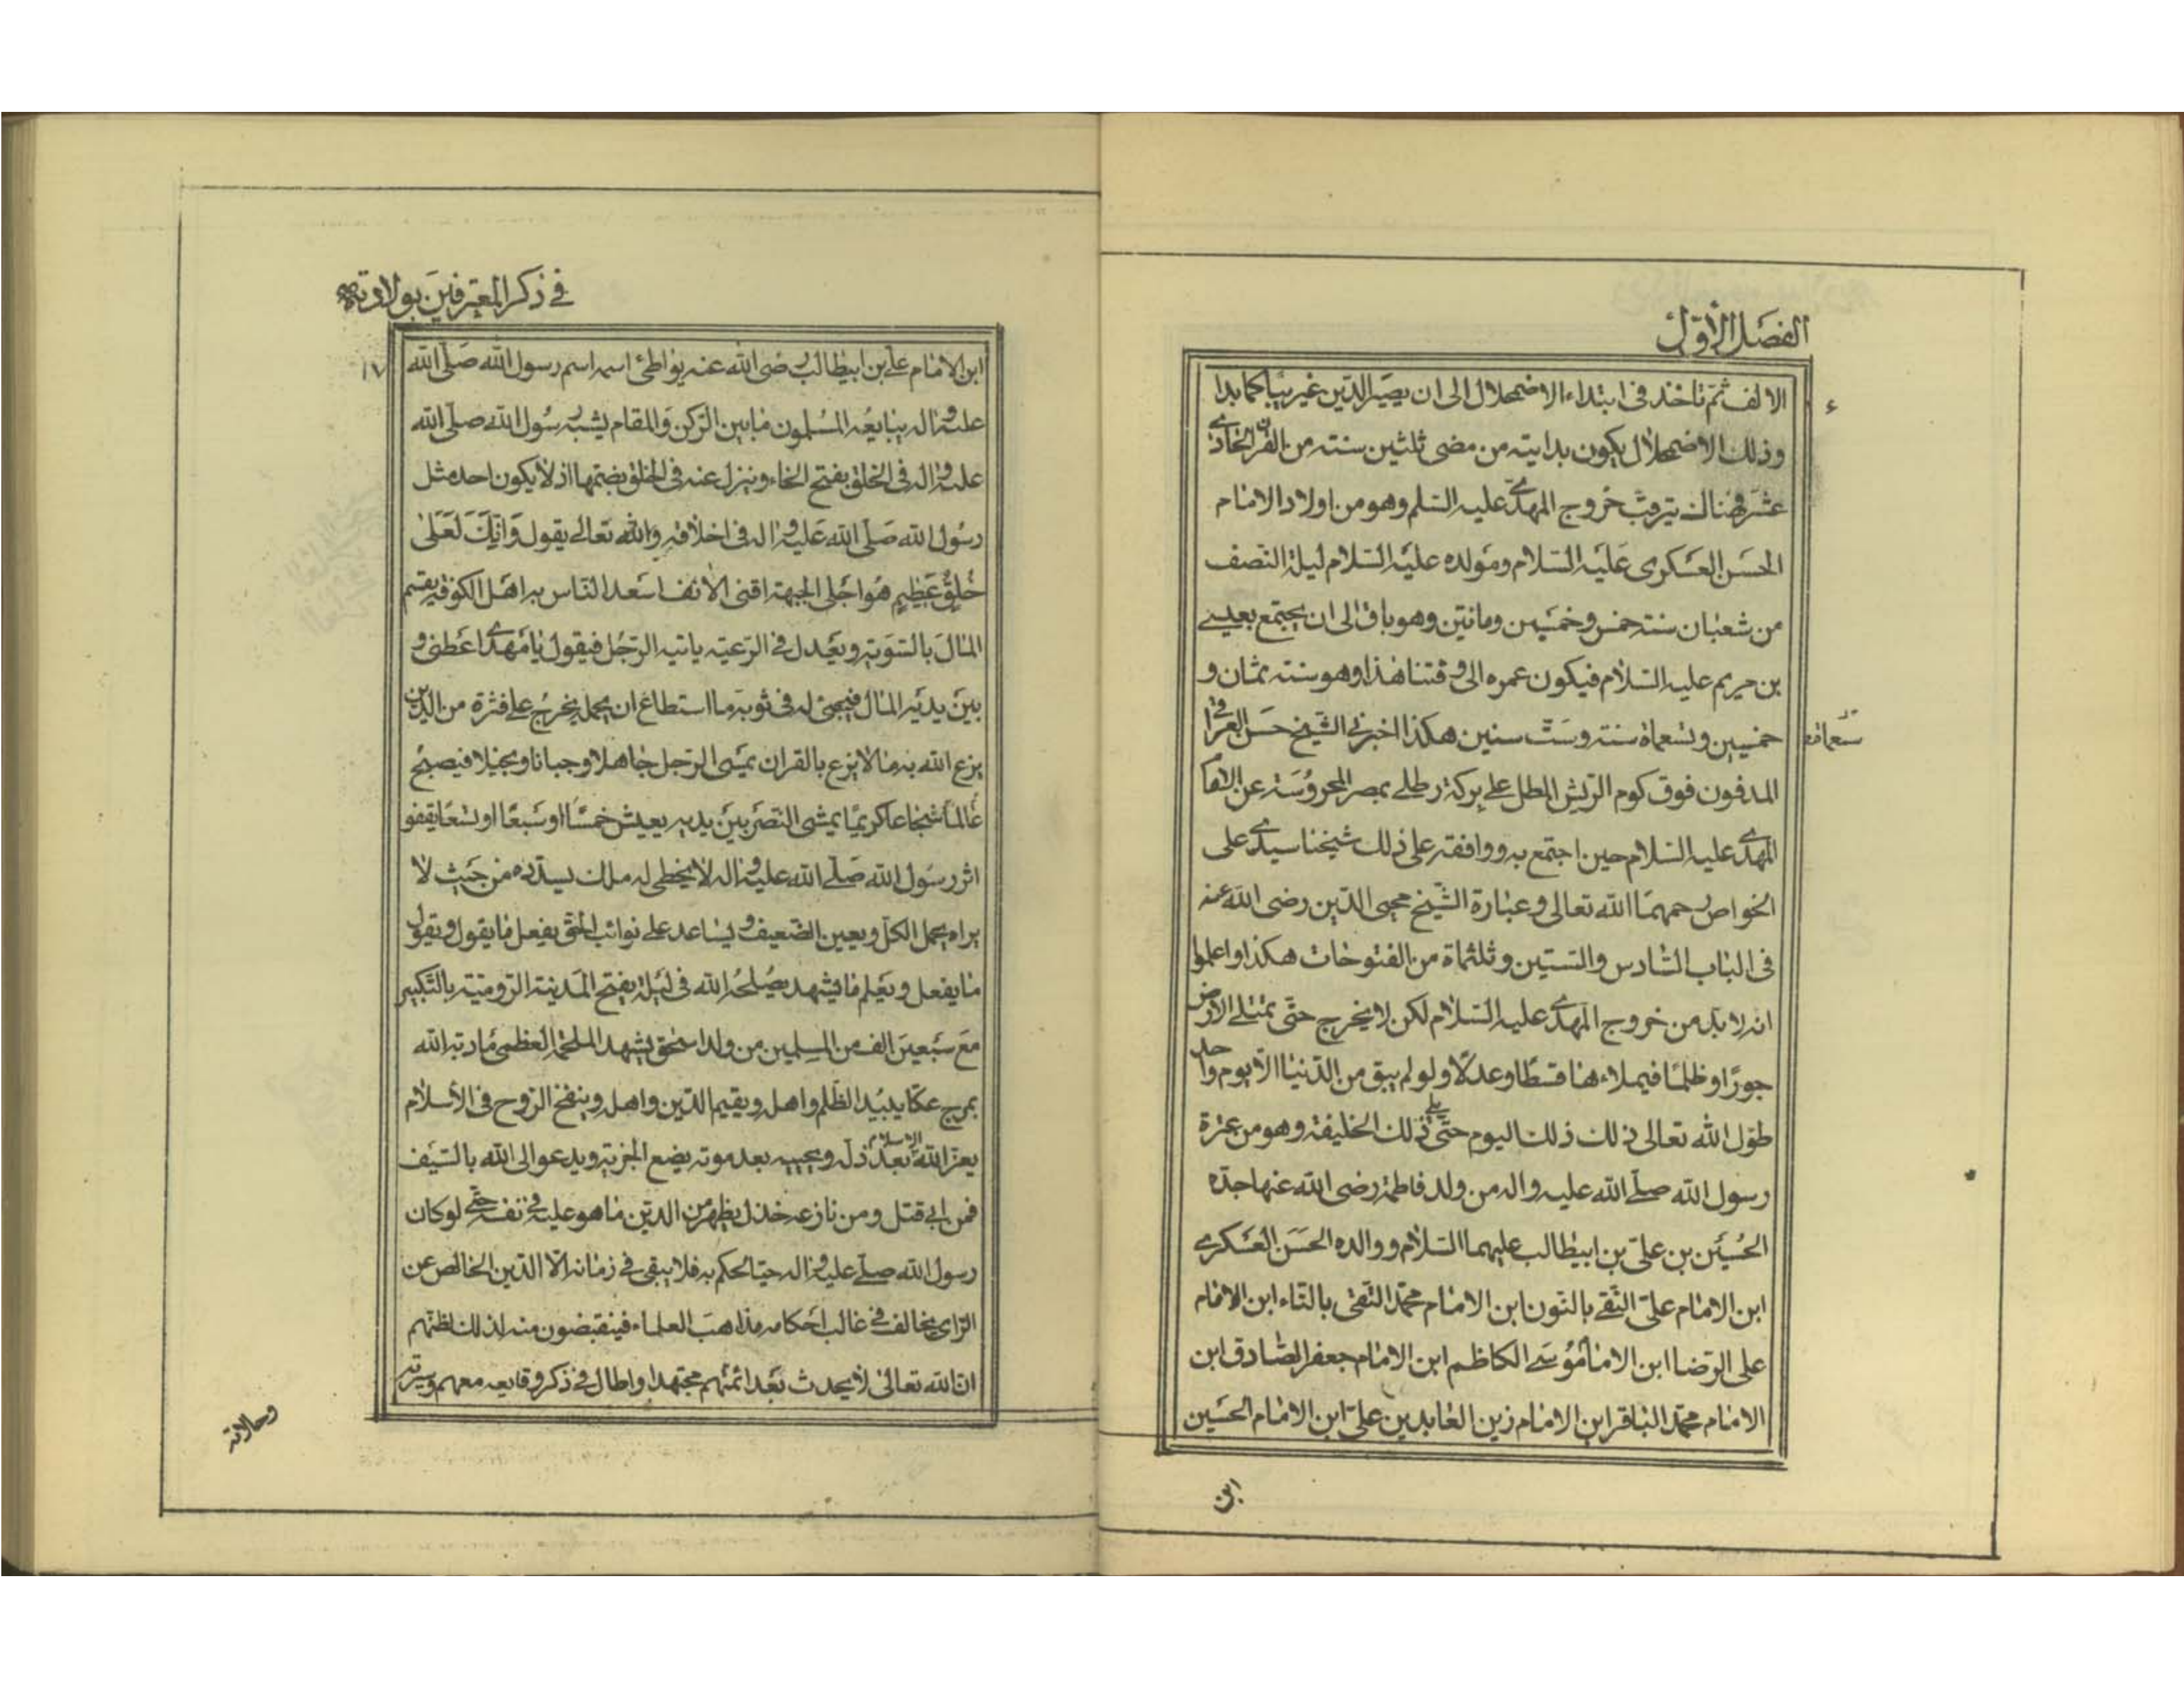 الفصل الأول
الالف ثم تاخذ فی ابتداء الاضمحلال الی ان یصیر الدین غریبا کما بدا
وذلک الاضمحلال یکون بدایته من مضی ثلثین سنته من القرن الحادی
عشر فهناک یترقب خروج المهدی علیه السلم وهو من اولاد الامام
الحسن العسکری علیه السلام ومولده علیه السلام لیلة النصف
من شعبان سنته خمس وخمسین ومائتین وهو باق الی ان یجتمع بعیسی
بن مریم علیه السلام فیکون عمره الی وقتنا هذا وهو سنته ثمان و
خمسین وتسعمأة سنته وست سنین هکذا اخبرنی الشیخ حسن العراقی
المدفون فوق کوم الریش المطل علی برکة رطلی بمصر المحروسته عن الامام
المهدی علیه السلام حین اجتمع به ووافقه علی ذلک شیخنا سیدی علی
الخواص رحمهما الله تعالی وعبارة الشیخ محیی الدین رضی الله عنه
فی الباب السادس والستین وثلثمأة من الفتوحات هکذا واعلموا
انه لا بد من خروج المهدی علیه السلام لکن لا یخرج حتی تمتلی الارض
جورا وظلما فیملاءها قسطا وعدلا ولو لم یبق من الدنیا الا یوم واحد
طول الله تعالی ذلک ذلک الیوم حتی یلی ذلک الخلیفته وهو من عترة
رسول الله صلی الله علیه واله من ولد فاطمة رضی الله عنها جده
الحسین بن علی بن ابیطالب علیهما السلام ووالده الحسن العسکری
ابن الامام علی النقی بالنون ابن الامام محمد التقی بالتاء ابن الامام
علی الرضا ابن الامام موسی الکاظم ابن الامام جعفر الصادق ابن
الامام محمد الباقر ابن الامام زین العابدین علی ابن الامام الحسین
ابن
فی ذکر المعترفین بولادته
١٧
ابن الامام علی بن ابیطالب رضی الله عنه یواطئ اسمه اسم رسول الله صلی الله
علیه واله یبایعه المسلمون مابین الرکن والمقام یشبه رسول الله صلی الله
علیه واله فی الخلق بفتح الخاء وینزل عنه فی الخلق بضمها اذ لا یکون احد مثل
رسول الله صلی الله علیه واله فی اخلاقه والله تعالی یقول وانک لعلی
خلق عظیم هو اجلی الجبهة اقنی الانف اسعد الناس به اهل الکوفه یقسم
المال بالسویه ویعدل فی الرعیه یاتیه الرجل فیقول یا مهدی اعطنی و
بین یدیه المال فیجئ له فی ثوبه ما استطاع ان یحمله یخرج علی فترة من الدین
یزع الله به مالا یزع بالقران یمسی الرجل جاهلا وجبانا وبخیلا فیصبح
عالما شجاعا کریما یمشی النصر بین یدیه یعیش خمسا او سبعا او تسعا یقفو
اثر رسول الله صلی الله علیه واله لا یخطی له ملک یسدده من حیث لا
یراه یحمل الکل ویعین الضعیف ویساعد علی نوائب الحق یفعل ما یقول ویقول
ما یفعل ویعلم ما یشهد یصلحه الله فی لیلة یفتح المدینة الرومیته بالتکبیر
مع سبعین الف من المسلمین من ولد اسحق یشهد الملحمة العظمی مادبة الله
بمرج عکا یبید الظلم واهله ویقیم الدین واهله وینفخ الروح فی الاسلام
یعز الله الاسلام بعد ذله ویحییه بعد موته یضع الجزیه ویدعو الی الله بالسیف
فمن ابی قتل ومن نازعه خذل یظهر من الدین ما هو علیه فی نفسه حتی لو کان
رسول الله صلی علیه واله حیا لحکم به فلا یبقی فی زمانه الا الدین الخالص عن
الرای یخالف فی غالب احکامه مذاهب العلماء فینقبضون منه لذلک لظنهم
ان الله تعالی لا یحدث بعد ائمتهم مجتهدا واطال فی ذکر وقایعه معهم وسیرته
وحالاته